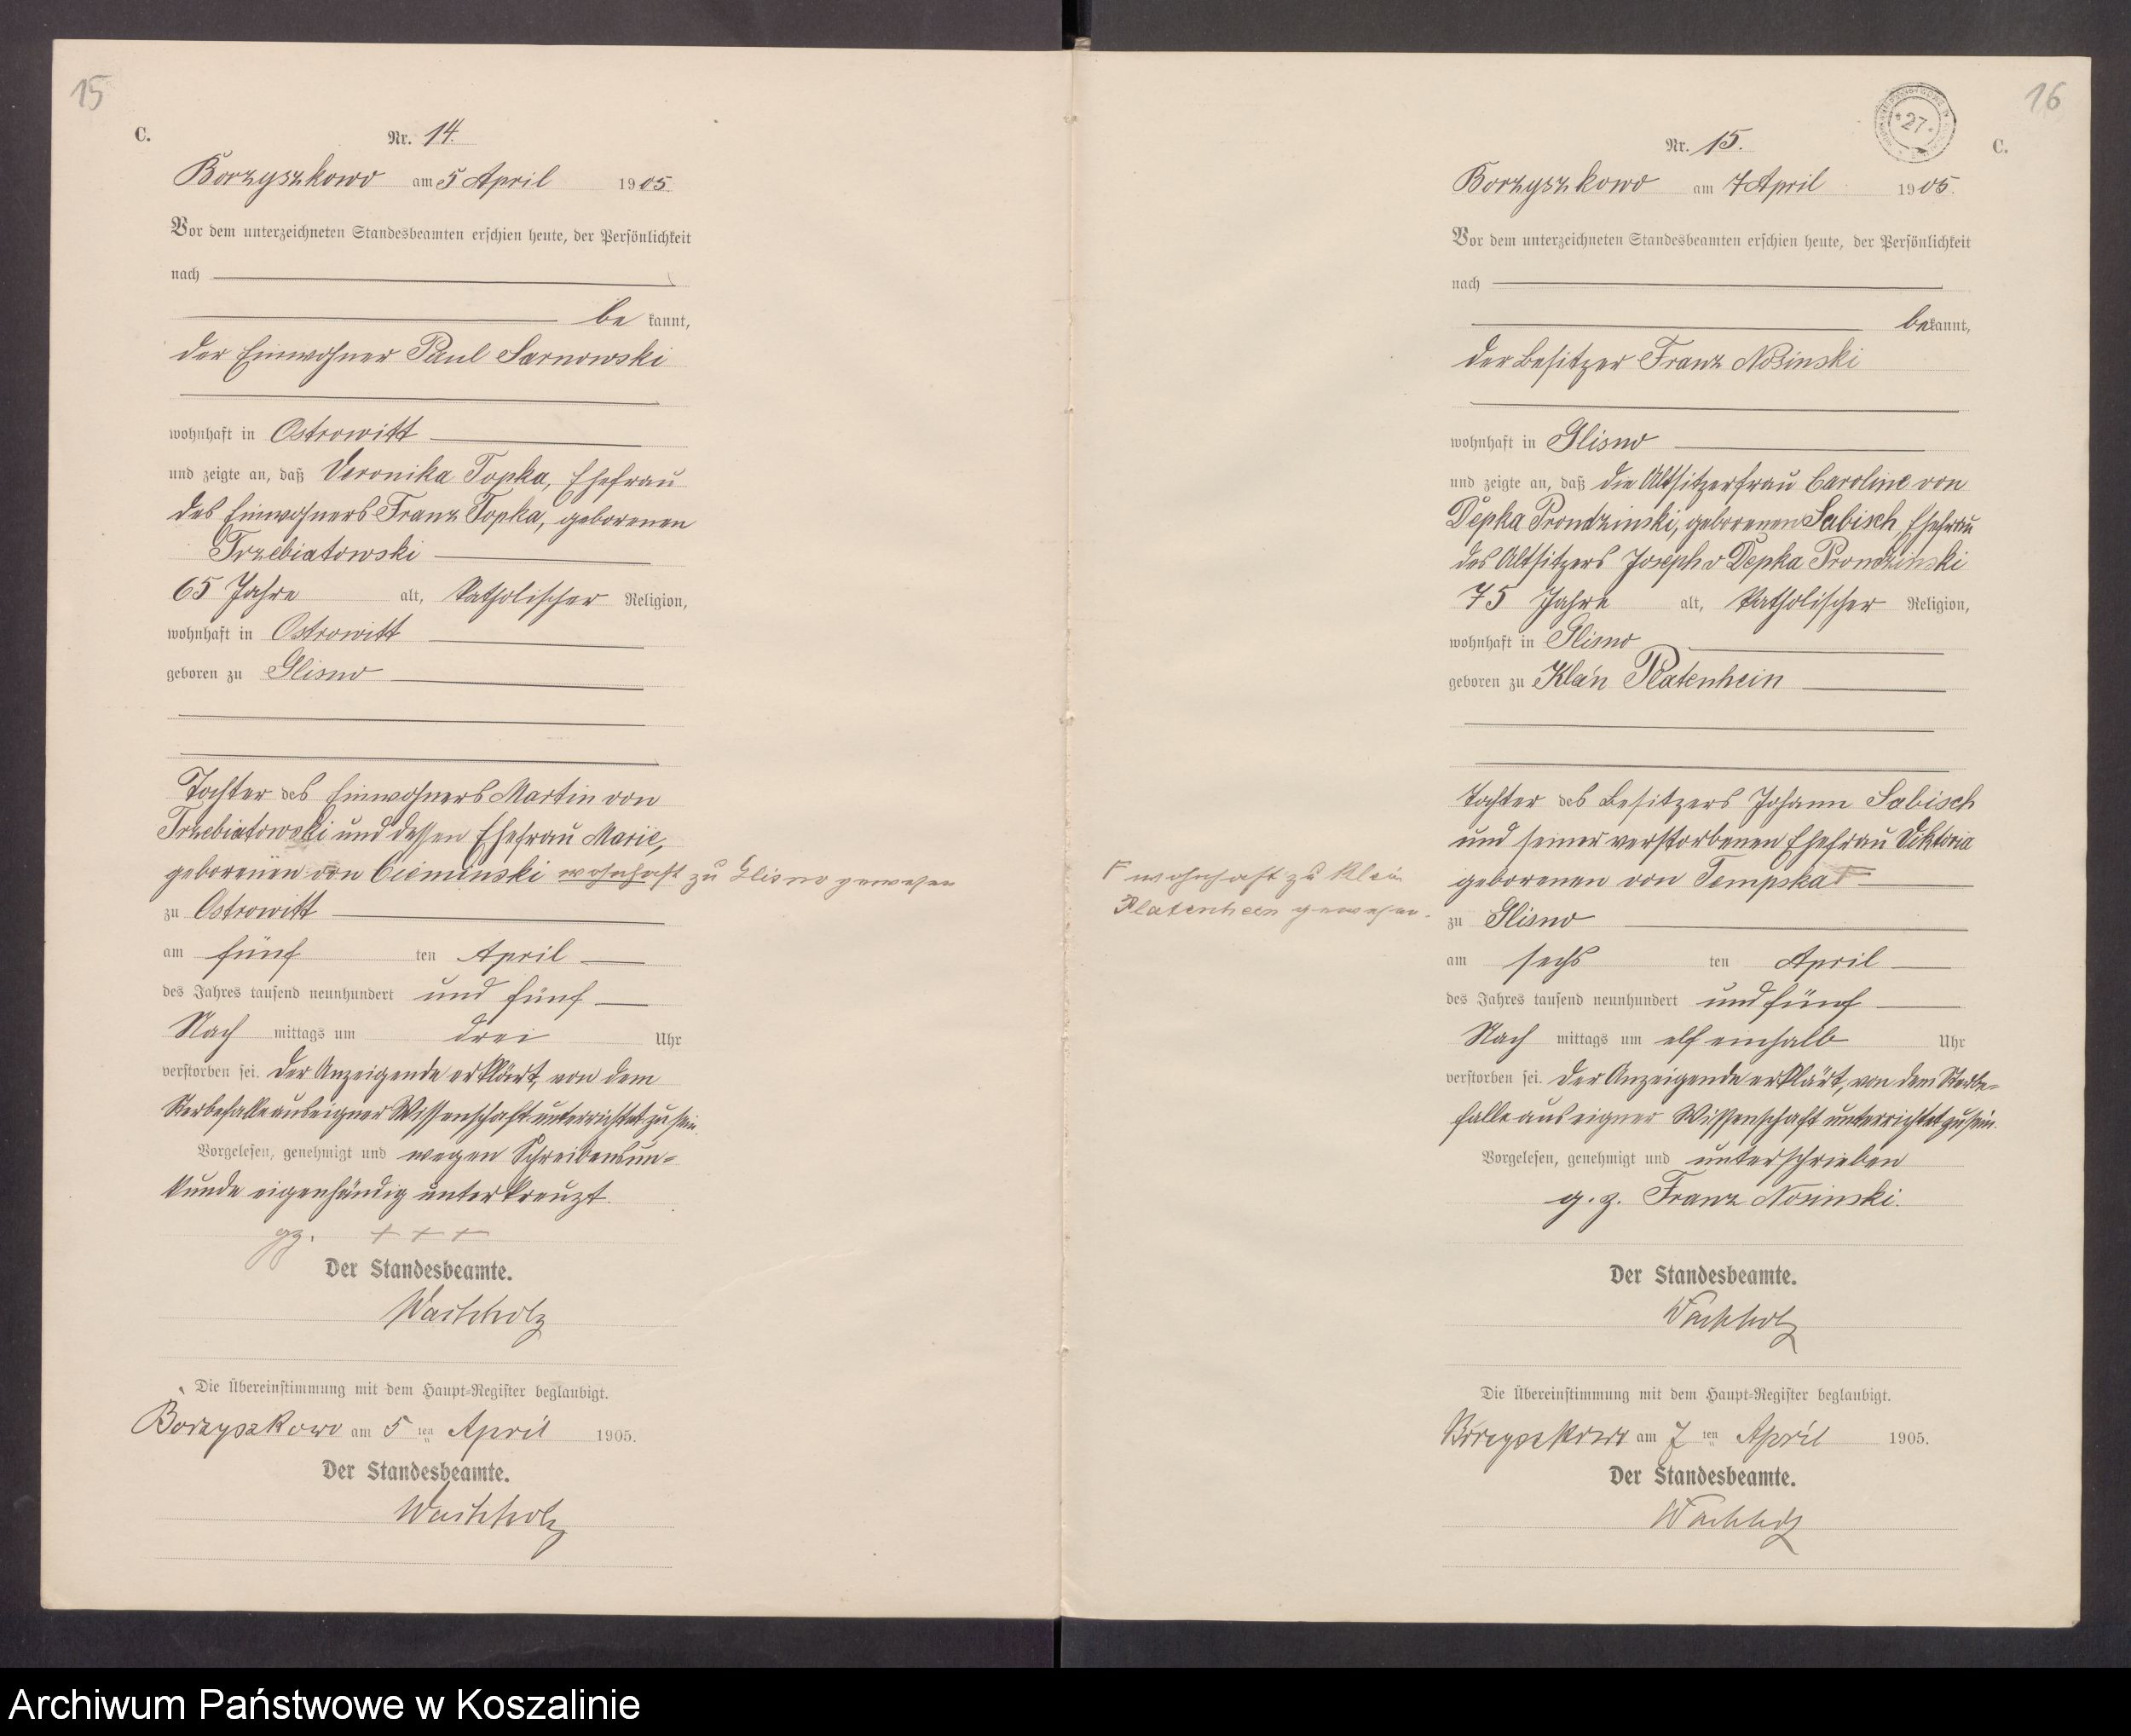 15
C.
Nr. 14.
Borzyszkowo am 5 April 1905.
Vor dem unterzeichneten Standesbeamten erschien heute, der Persönlichkeit
nach
be kannt,
der Einwohner Paul Sarnowski
wohnhaft in Ostrowitt
und zeigte an, daß Veronika Topka, Ehefrau
des Einwohners Franz Topka, geborenen
Trzebiatowski
65 Jahre alt, katholischer Religion,
wohnhaft in Ostrowitt
geboren zu Glisno
Tochter des Einwohners Martin von
Trzebiatowski und dessen Ehefrau Marie,
geborenen von Cieminski wohnhaft zu Glisno gewesen
zu Ostrowitt
am fünf ten April
des Jahres tausend neunhundert und fünf
Nach mittags um drei Uhr
verstorben sei. Der Anzeigende erklärt, von dem
Sterbefalle aus eigner Wissenschaft unterrichtet zu sein.
Vorgelesen, genehmigt und wegen Schreibensun-
kunde eigenhändig unterkreuzt.
gz. + + +
Der Standesbeamte.
Wachholz
Die Übereinstimmung mit dem Haupt-Register beglaubigt.
Borzyszkowo am 5 ten April 1905.
Der Standesbeamte.
Wachholz
16
27
C.
Nr. 15.
Borzyszkowo am 7 April 1905.
Vor dem unterzeichneten Standesbeamten erschien heute, der Persönlichkeit
nach
bekannt,
der Besitzer Franz Nosinski
wohnhaft in Glisno
und zeigte an, daß die Altsitzerfrau Caroline von
Depka Prondzinski, geborenen Sabisch, Ehefrau
des Altsitzers Joseph v Depka Prondzinski
75 Jahre alt, katholischer Religion,
wohnhaft in Glisno
geboren zu Klein Platenhein
Tochter des Besitzers Johann Sabisch
und seiner verstorbenen Ehefrau Viktoria
geborenen von Tempska
wohnhaft zu Klein
Platenhein gewesen.
zu Glisno
am sechs ten April
des Jahres tausend neunhundert und fünf
Nach mittags um elf einhalb Uhr
verstorben sei. Der Anzeigende erklärt, von dem Sterbe-
falle aus eigner Wissenschaft unterrichtet zu sein.
Vorgelesen, genehmigt und unterschrieben
g. z. Franz Nosinski.
Der Standesbeamte.
Wachholz
Die Übereinstimmung mit dem Haupt-Register beglaubigt.
Borzyszkowo am 7 ten April 1905.
Der Standesbeamte.
Wachholz
Archiwum Państwowe w Koszalinie